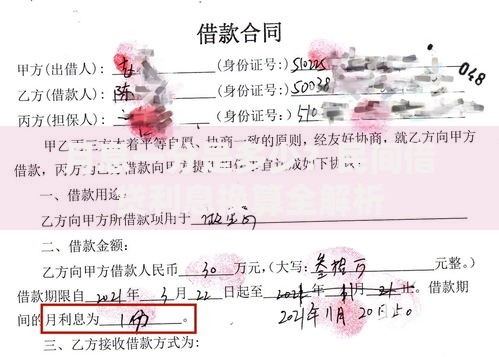 借款合同
甲方(出借人)： (身份证号：510225
乙方(借款人)：陈 (身份证号：50038 048
丙方(担保人)： (身份证号：510
甲乙丙三方本着平等自愿、协商一致的原则，经友好协商，就乙方向甲方
借款，丙方为乙方借款向甲方提供担保事宜达成如下协议：
一、借款用途：
乙方向甲方所借款项用于 做生意
二、借款金额：
乙方向甲方借款人民币 30 万元，(大写：叁拾万 元整。)
借款期限自 2021 年 3 月 22 日起至 2021 年 月 止。借款期
间的月利息为 1分 。 2021年11月20日止
三、乙方接收借款方式为：
间借
利息换算全解析